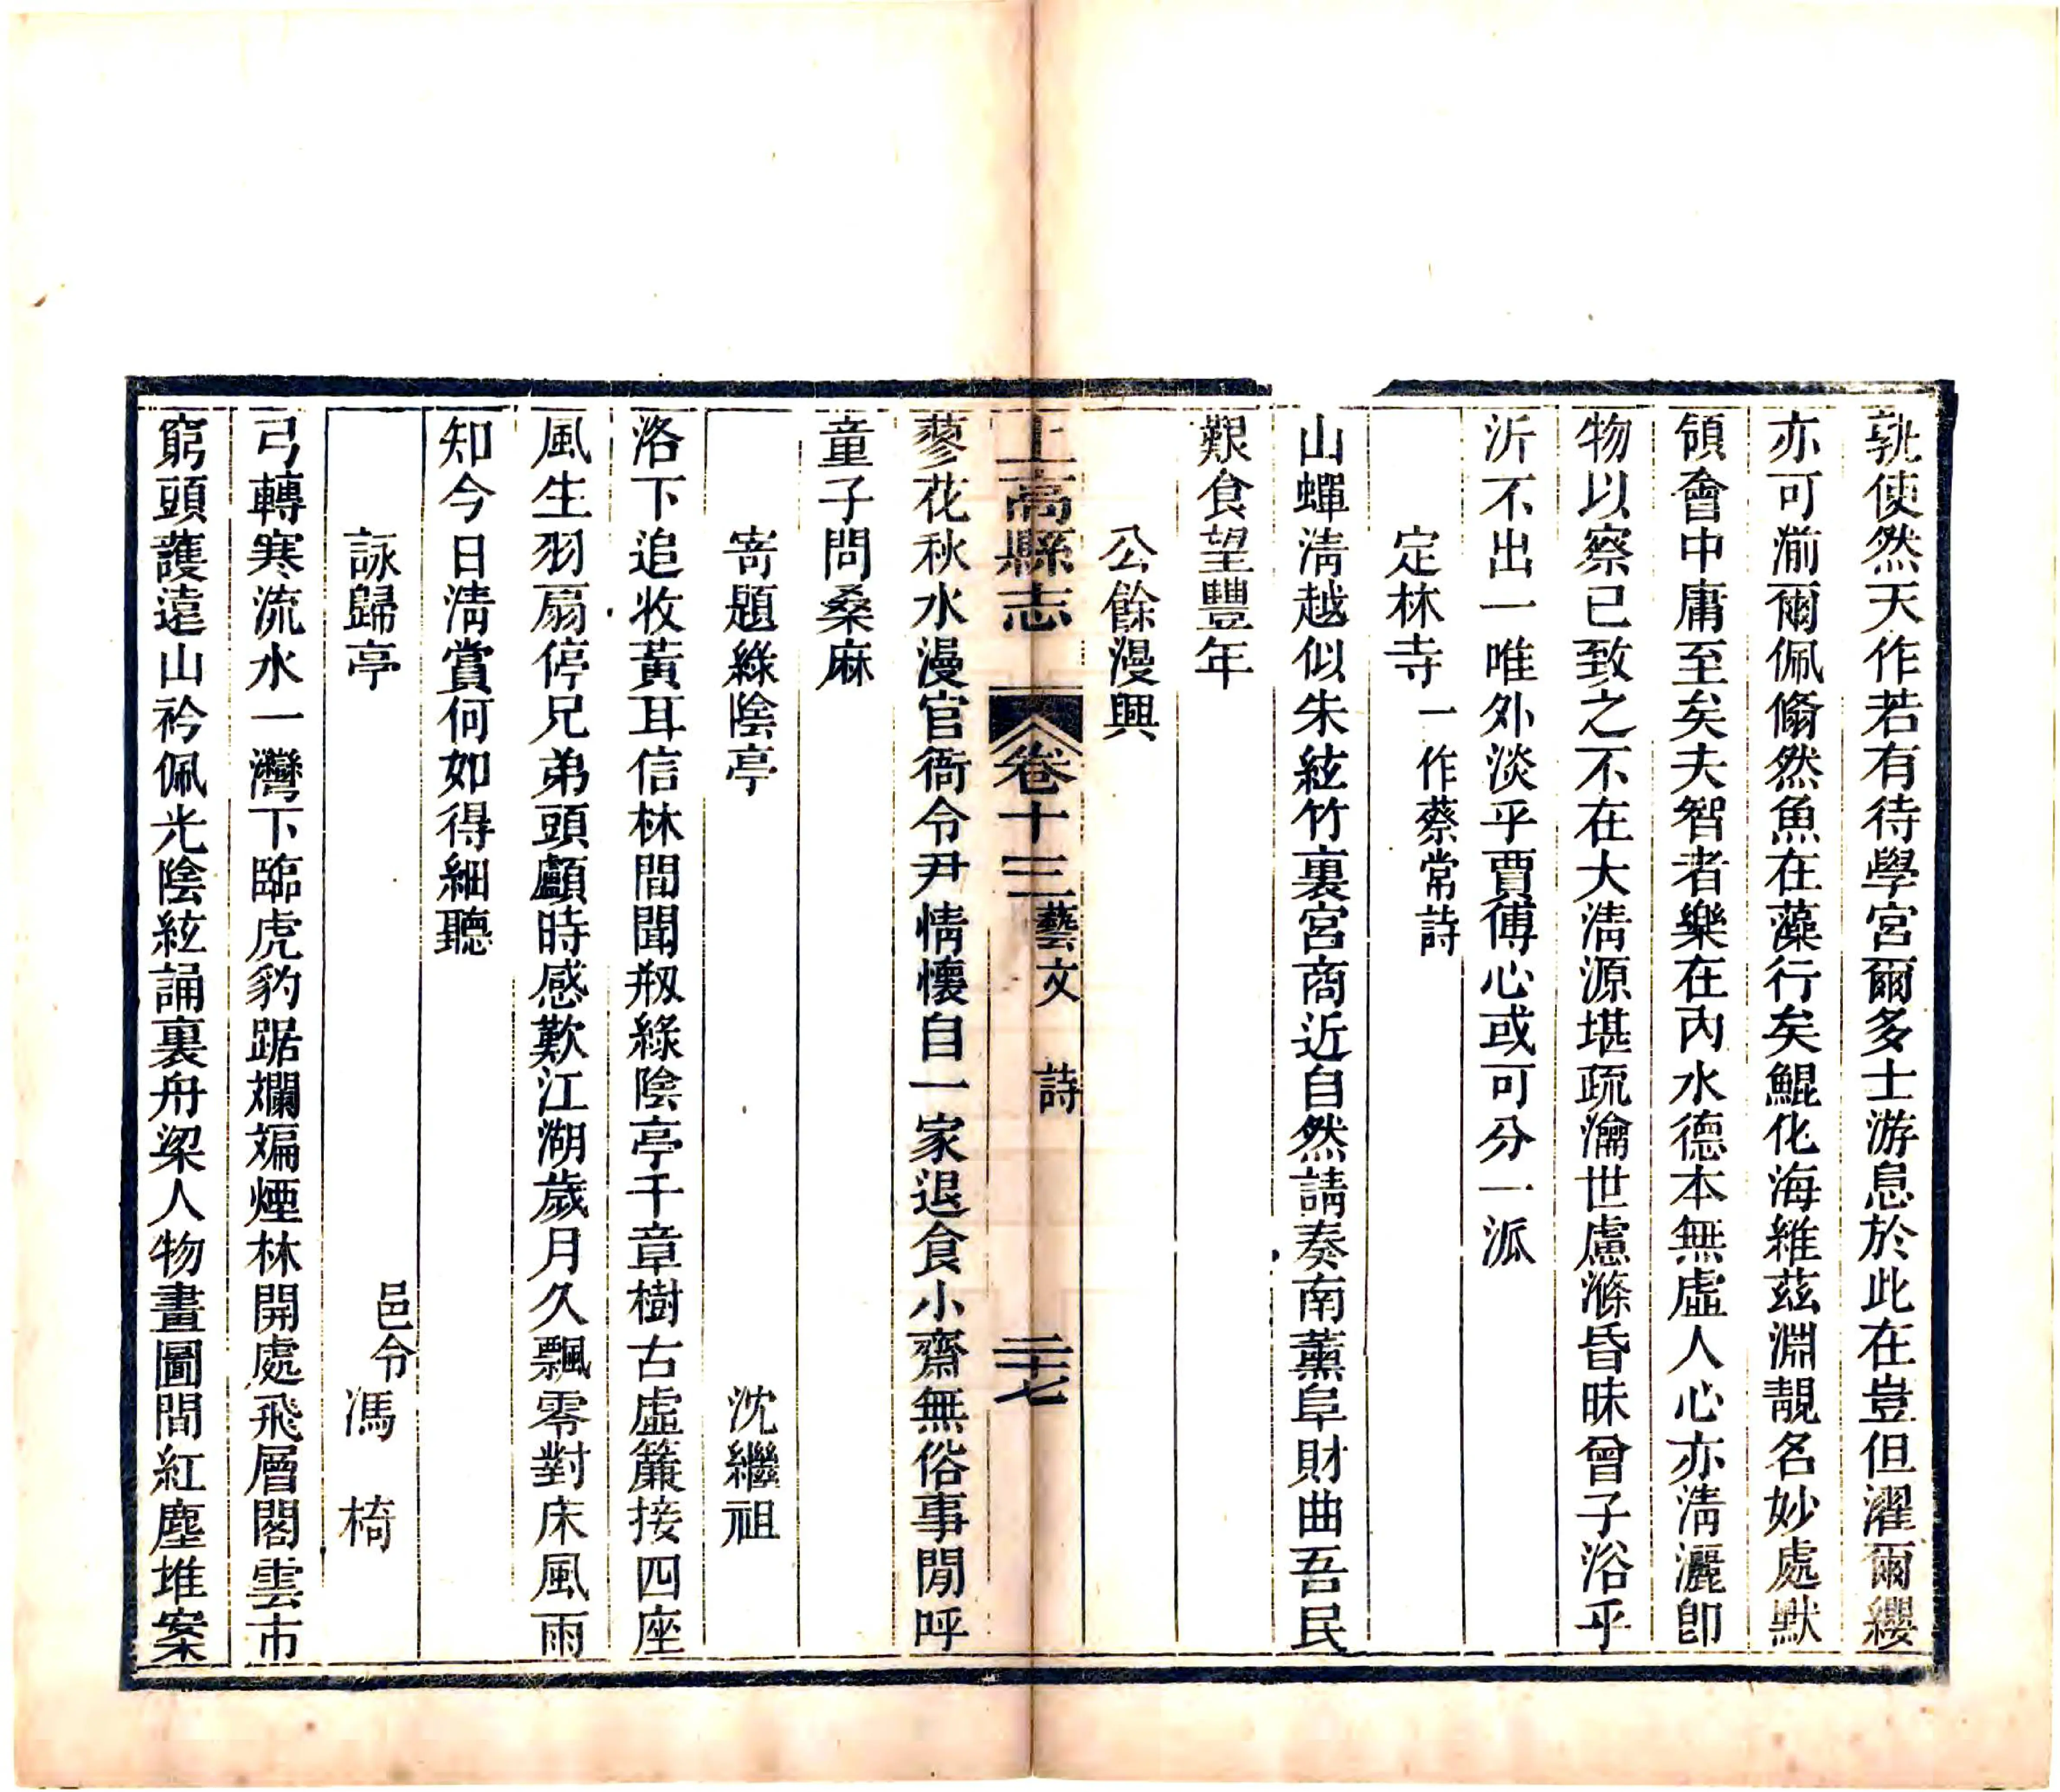 孰使然天作若有待學宮爾多士游息於此在豈但濯爾纓
亦可湔爾佩翛然魚在藻行矣鯤化海維茲淵靚名妙處默
領會中庸至矣夫智者樂在內水德本無虛人心亦清灑卽
物以察已致之不在大清源堪疏瀹世慮滌昏昧曾子浴乎
沂不出一唯外淡乎賈傅心或可分一派
定林寺一作蔡常詩
山蟬清越似朱絃竹裏宮商近自然請奏南薰阜財曲吾民
艱食望豐年
公餘漫興
上高縣志 卷十三 藝文 詩 二十七
蓼花秋水漫官衙令尹情懷自一家退食小齋無俗事閒呼
童子問桑麻
寄題綠陰亭 沈繼祖
洛下追收黃耳信林間聞剏綠陰亭千章樹古虛簾接四座
風生羽扇停兄弟頭顱時感歎江湖歲月久飄零對床風雨
知今日清賞何如得細聽
詠歸亭 邑令馮椅
弓轉寒流水一灣下臨虎豹踞斕斒煙林開處飛層閣雲市
窮頭護遠山衿佩光陰絃誦裏舟梁人物畫圖間紅塵堆案